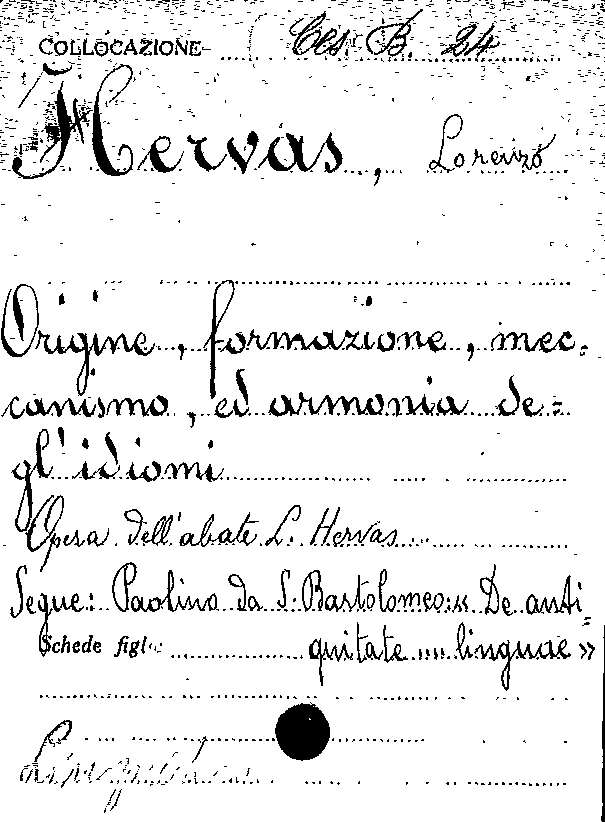 COLLOCAZIONE Ces. B. 24
Hervas, Lorenzo
Origine, formazione, mec=
canismo, ed armonia de=
gl'idiomi
Opera dell'abate L. Hervas
Segue: Paolino da S. Bartolomeo: « De anti=
Schede figlie quitate .... linguae »